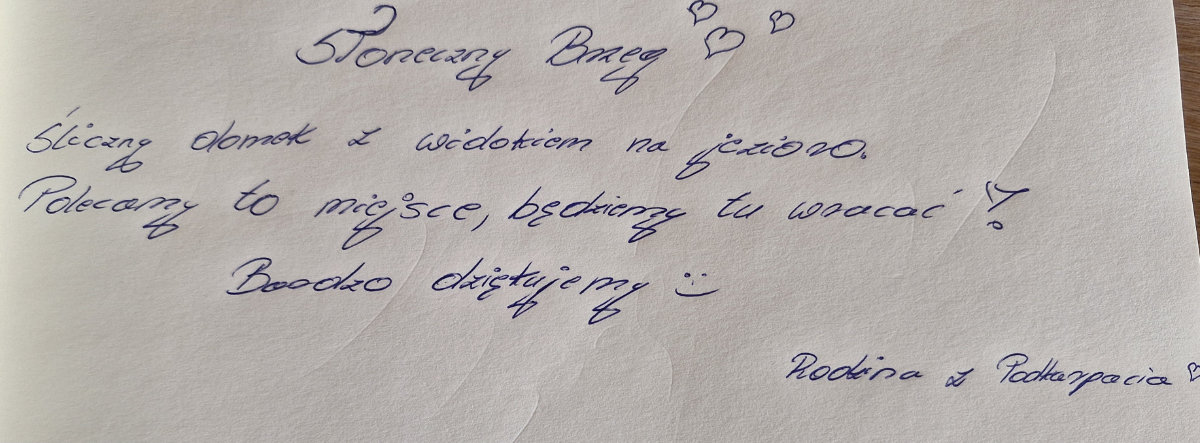 Słoneczny Brzeg ♡♡♡
Śliczny domek z widokiem na jezioro.
Polecamy to miejsce, będziemy tu wracać!
Bardzo dziękujemy :)
Rodzina z Podkarpacia ♡